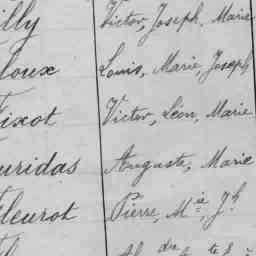 illy Victor, Joseph, Marie
loux Louis, Marie, Joseph
ixot Victor, Léon, Marie
uridas Auguste, Marie
leurot Pierre, Mie, Jh